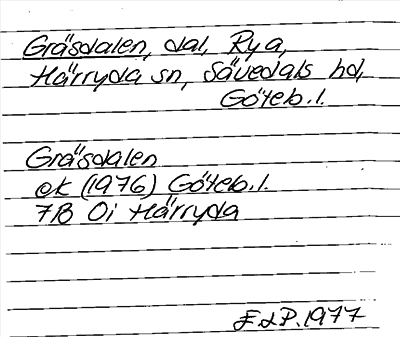 Gräsdalen, dal, Rya,
Härryda sn, Sävedals hd,
Göteb. l.
Gräsdalen
ek (1976) Göteb. l.
7B 0i Härryda
1977